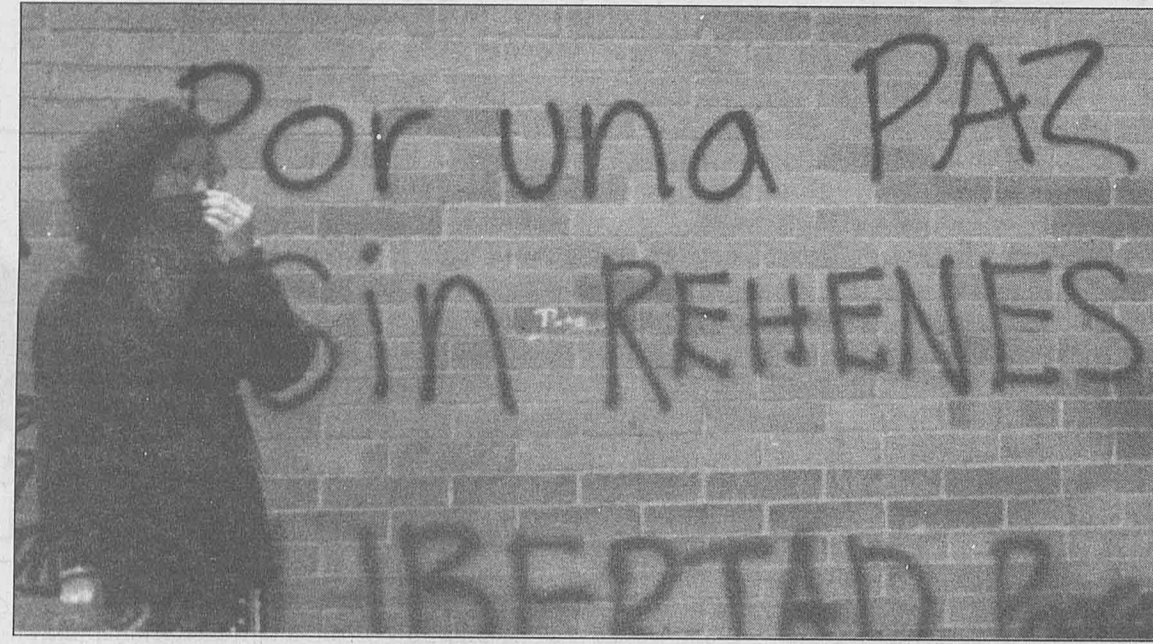 Por una PAZ
Sin REHENES
LIBERTAD